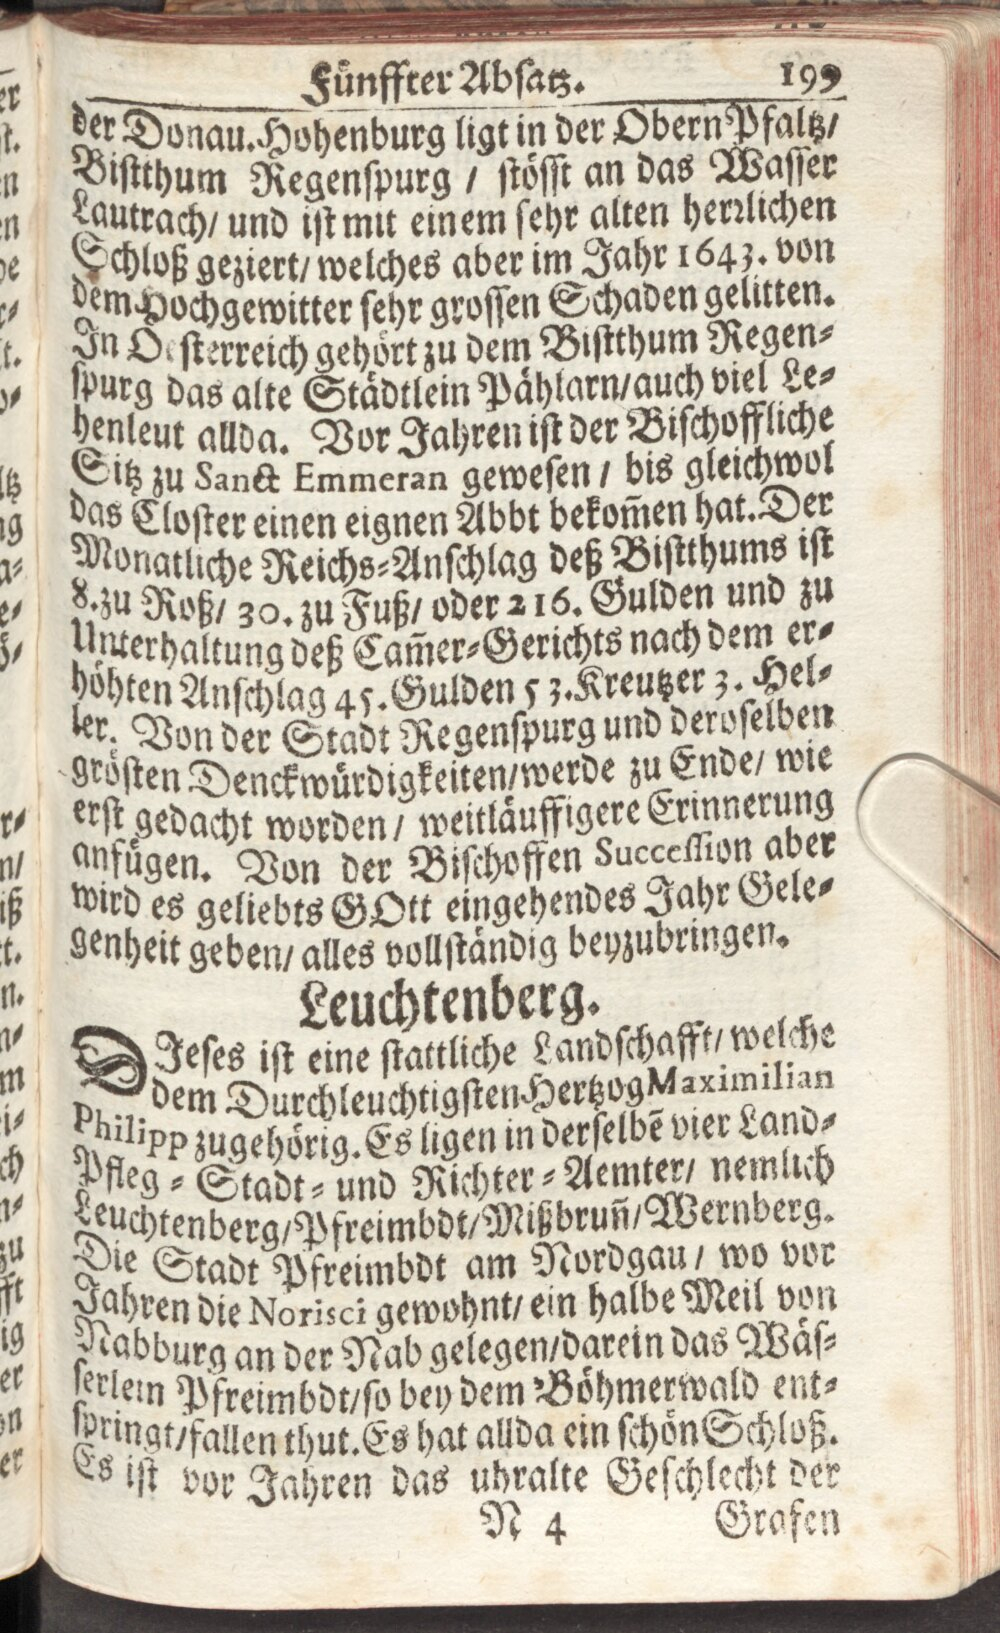 Fünffter Absatz. 199
der Donau. Hohenburg ligt in der Obern Pfaltz/
Bistthum Regenspurg / stösst an das Wasser
Lautrach/ und ist mit einem sehr alten herrlichen
Schloß geziert/ welches aber im Jahr 1643. von
dem Hochgewitter sehr grossen Schaden gelitten.
In Oesterreich gehört zu dem Bistthum Regen-
spurg das alte Städtlein Pählarn/ auch viel Le-
henleut allda. Vor Jahren ist der Bischoffliche
Sitz zu Sanct Emmeran gewesen / bis gleichwol
das Closter einen eignen Abbt bekom̄en hat. Der
Monatliche Reichs-Anschlag deß Bistthums ist
8. zu Roß/ 30. zu Fuß/ oder 216. Gulden und zu
Unterhaltung deß Cam̄er-Gerichts nach dem er-
höhten Anschlag 45. Gulden 53. Kreutzer 3. Hel-
ler. Von der Stadt Regenspurg und deroselben
grösten Denckwürdigkeiten/ werde zu Ende/ wie
erst gedacht worden / weitläuffigere Erinnerung
anfügen. Von der Bischoffen Succession aber
wird es geliebts GOtt eingehendes Jahr Gele-
genheit geben/ alles vollständig beyzubringen.
Leuchtenberg.
DJeses ist eine stattliche Landschafft/ welche
dem Durchleuchtigsten Hertzog Maximilian
Philipp zugehörig. Es ligen in derselbē vier Land-
Pfleg - Stadt - und Richter - Aemter/ nemlich
Leuchtenberg/ Pfreimbdt/ Mißbrun̄/ Wernberg.
Die Stadt Pfreimbdt am Nordgau / wo vor
Jahren die Norisci gewohnt/ ein halbe Meil von
Nabburg an der Nab gelegen/ darein das Wäs-
serlein Pfreimbdt/ so bey dem Böhmerwald ent-
springt/ fallen thut. Es hat allda ein schön Schloß.
Es ist vor Jahren das uhralte Geschlecht der
N 4 Grafen